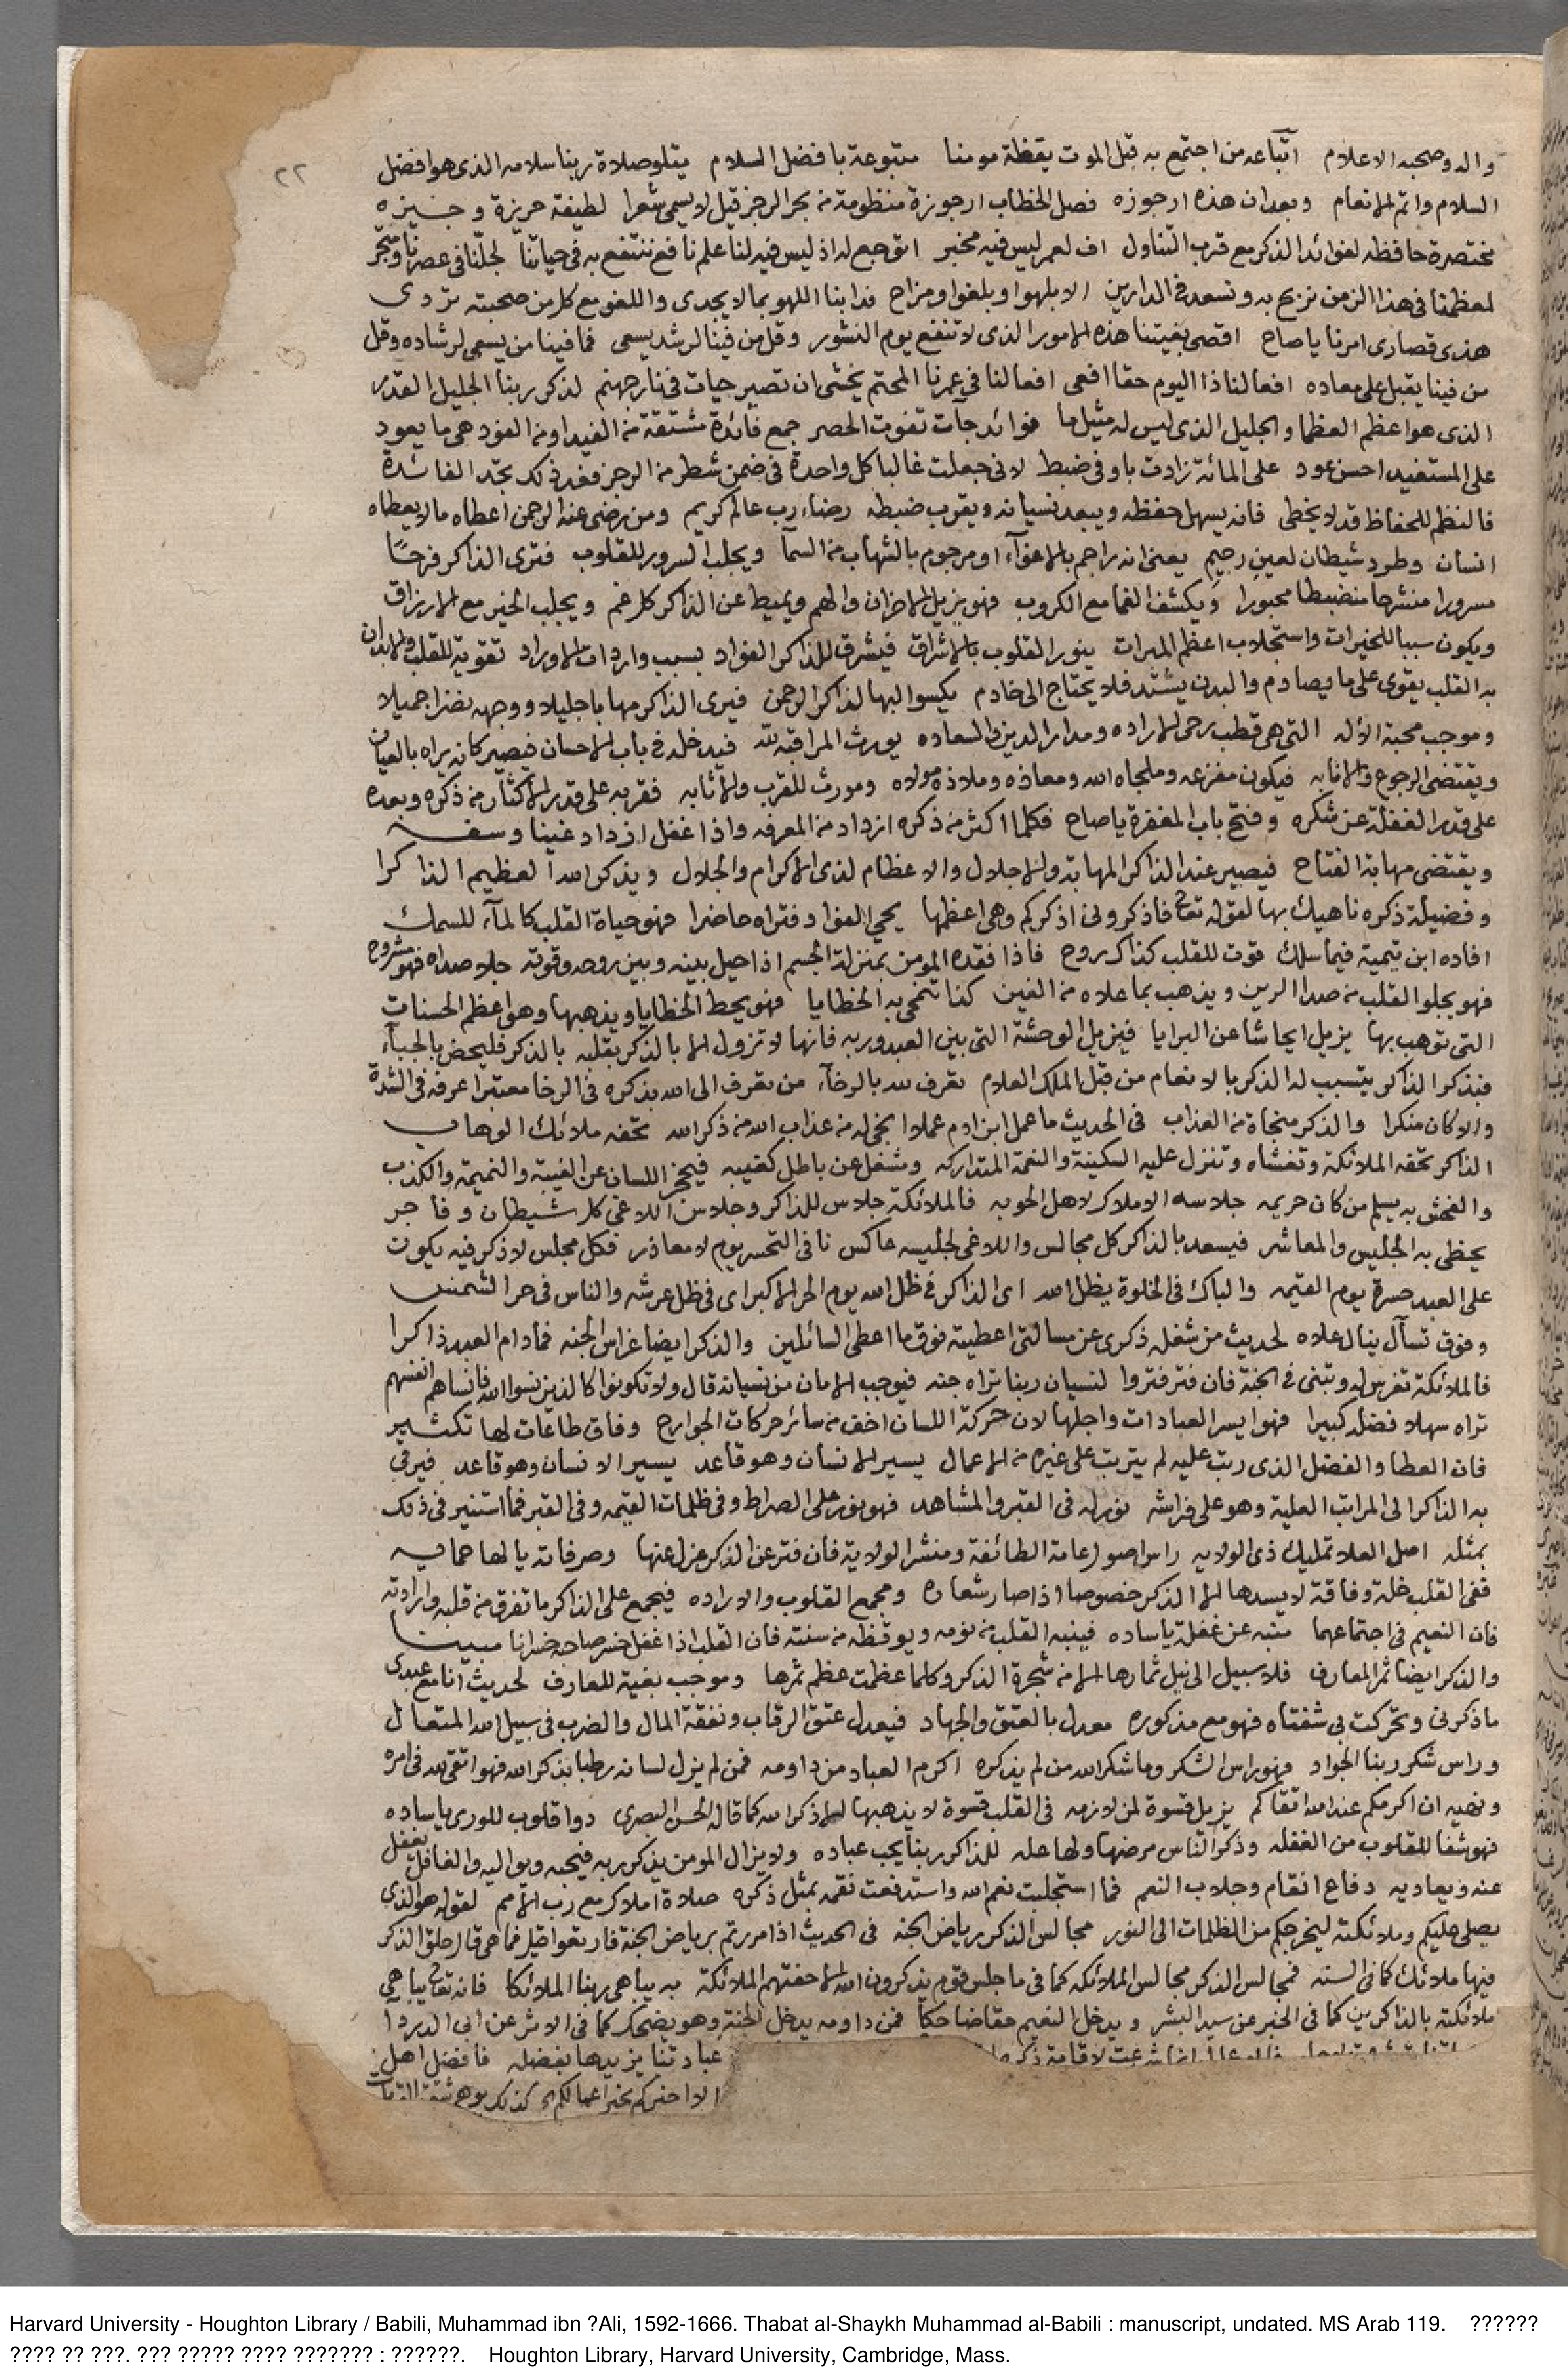 ٢٢
واله وصحبه الاعلام اتباعه من اجتمع به قبل الموت يقظة مومنا متبوعة بافضل السلام يتلو صلاة ربنا سلامه الذى هو افضل
السلام واتم الانعام وبعد ان هذه ارجوزه فصل الخطاب ارجوزة منظومة من بحر الرجز قيل لا يسمى شعرا لطيفة حريزة وجيزه
مختصرة حافظه لفوائد الذكر مع قرب التناول اف لعمر ليس فيه مخبر اتوجع له اذ ليس فيه لنا علم نافع ننتفع به فى حياتنا لجلنا فى عصرنا
لمعظمنا فى هذا الزمن نربح به ونسعد فى الدارين الا بلهوا وبلغوا ومزاح فدابنا اللهو بما لا يجدى واللغو مع كل من صحبته تردى
هذى قصارى امرنا ياصاح اقصى بغيتنا هذه الامور الذى لا تنفع يوم النشور وقل من فينا لرشد يسعى فما فينا من يسعى لرشاده وقل
من فينا يقبل على معاده افعالنا ذا اليوم حقا افعى افعالنا في عمرنا المحتم يخشى ان تصير حيات فى نار جهنم لذكر ربنا الجليل القدر
الذى هو اعظم العظما والجليل الذى ليس له مثيل ما فوائد جآت تفوت الحصر جمع فائدة مشتقة من الفيد او من الفود هى ما يعود
على المستفيد احسن عود على المائة زادت باوفى ضبط لانى جعلت غالبا كل واحدة فى ضمن شطر من الرجز فعد فى كل تجد الفائدة
فالنظم للحفاظ قد لا يخطى فانه يسهل حفظه ويبعد نسيانه ويقرب ضبطه رضاء رب عالم كريم ومن يرضى عنه الرحمن اعطاه مالا يعطاه
انسان وطرد شيطان لعين رجيم يعنى انه راجم بالاغوآء او مرجوم بالشهاب من السمآ ويجلب السرور للقلوب فترى الذاكر فرحًا
مسرورا منشرحا منضبطا محبورا ويكشف الغما مع الكروب فهو يزيل الاحزان والهم ويميط عن الذاكر كل غم ويجلب الخير مع الارزاق
ويكون سببا للخيرات واستجلاب اعظم المبرات ينور القلوب بالاشراق فيشرق للذاكر الفؤاد بسبب واردات الاوراد تقوية للقلب والابدان
به القلب يقوى على ما يصادم والبدن يشتد فلا يحتاج الى خادم يكسوا البها لذاكر الرحمن فيرى الذاكر مهابا جليلا ووجهه نضرا جميلا
وموجب محبة الأله التى هى قطب رحى الاراده ومدار الدين والسعاده يورث المراقبة لله فيدخله فى باب الاحسان فيصير كانه يراه بالعيان
ويقتضى الرجوع والانابه فيكون مفزعه وملجاه الله ومعاذه وملاذه مولاه ومورث للقرب والاثابه فقربه على قدر الاكثار من ذكره وبعده
على قدر الغفلة عن شكره وفتح باب المغفرة ياصاح فكلما اكثر من ذكره ازداد من المعرفه واذا غفل ازداد غينا وسفه
ويقتضى مهابة الفتاح فيصير عند الذاكر المهابة والاجلال والاعظام لذى الاكرام والجلال ويذكر الله العظيم الذاكرا
وفضيلة ذكره ناهيك بها لقوله تعالى فاذكرونى اذكركم وهى اعظمها يحيي الفواد فتراه حاضرا فهو حياة القلب كالمآء للسمك
افاده ابن تيمية فيما سلك قوت للقلب كذاك روح فاذا فقده المومن بمنزلة الجسم اذا حيل بينه وبين روحه وقوته جلا صداه فهو مشروح
فهو يجلوا القلب من صدا الرين ويذهب بما علاه من الغين كذا تنمحى به الخطايا فهو يحط الخطايا ويذهبها وهو اعظم الحسنات
التى توهب بها يزيل ايحاشا عن البرايا فيزيل الوحشة التى بين العبد وربه فانها لا تزول الا بالذكر بقلبه بالذكر فليحض بالحبآء
فبذكر الذاكر يتسبب له الذكر بالانعام من قبل الملك العلام تعرف لله بالرخآء من تعرف الى الله بذكره فى الرخا معتبرا عرفه فى الشدة
والا كان منكرا والذكر منجاة من العذاب فى الحديث ما عمل ابن ادم عملا انجى له من عذاب الله من ذكر الله تحفه ملائك الوهاب
الذاكر تحفه الملائكة وتغشاه وتنزل عليه السكينة والنعمة المتداركه وشغل عن باطل كغيبه فيحجز اللسان عن الغيبة والنميمة والكذب
والفحش به يسلم من كان حريمه جلاسه الاملاك لاهل الحوبه فالملائكة جلاس للذاكر وجلاس اللاغى كل شيطان وفاجر
يحظى به الجليس والمعاشر فيسعد بالذاكر كل مجالس واللاغى لجليسه عاكس نافى التحسر يوم لا معاذر فكل مجلس لا ذكر فيه يكون
على العبد حسرة يوم القيمه والباك فى الخلوة يظل الله اى الذاكر فى ظل الله يوم الحر الاكبر اى فى ظل عرشه والناس فى حر الشمس
وفوق تسآل ينال علاه لحديث من شغله ذكرى عن مسالتى اعطيته فوق ما اعطى السائلين والذكر ايضا غراس الجنه فمادام العبد ذاكرا
فالملائكة تغرس له وتبنى فى الجنة فان فتر فتروا لنسيان ربنا تراه جنه فيوجب الامان من نسيانه قال ولا تكونوا كالذين نسوا الله فانساهم انفسهم
تراه سهلا فضله كبيرا فهو ايسر العبادات واجلها لان حركة اللسان اخف من سائر حركات الجوارح وفاق طاعات لها تكثير
فان العطا والفضل الذى رتب عليه لم يترتب على غيره من الاعمال يسير الانسان وهو قاعد يسير الانسان وهو قاعد فيرقى
به الذاكر الى المراتب العلية وهو على فراشه نور له فى القبر والمشاهد فهو نور على الصراط وفى ظلمات القيمه وفى القبر فما استنير فى ذلك
بمثله اصل العلا تمليك ذى الولايه راس اصول عامة الطائفة ومنشر الولاية فان فتر عن الذكر عزل عنها وصرفا ته يا لها حمايه
ففى القلب خلة وفاقة لا يسدها الا الذكر خصوصا اذا صار شعاره ومجمع القلوب والاراده فيجمع على الذاكر ما تفرق من قلبه وارادته
فان النعيم فى اجتماعهما منبه عن غفلة ياساده فينبه القلب من نومه ويوقظه من سنته فان القلب اذا غفل خسر صاحبه خسرانا مبينا
والذكر ايضا ثمر المعارف فلا سبيل الى نيل ثمارها الا من شجرة الذكر وكلما عظمت عظم ثمرها وموجب بغية للعارف لحديث انا مع عبدى
ما ذكرنى وتحركت بى شفتاه فهو مع مذكوره معدل بالعتق والجهاد فيعدل عتق الرقاب ونفقة المال والضرب فى سبيل الله المتعال
وراس شكر ربنا الجواد فهو راس الشكر وما شكر الله من لم يذكره اكرم العباد من داومه فمن لم يزل لسانه رطبا بذكر الله فهو اتقى لله فى امره
ونهيه ان اكرمكم عند الله اتقاكم يزيل قسوة لمن لازمه فى القلب قسوة لا يذهبها الا ذكر الله كما قال الحسن البصرى دوا قلوب للورى ياساده
فهو شفا للقلوب من الغفله وذكر الناس مرضها ولها عله للذاكر ربنا يحب عباده ولا يزال المومن يذكر ربه فيحبه ويواليه والغافل يغفل
عنه ويعاديه دفاع انقام وجلاب النعم فما استجلبت نعم الله واستدفعت نقمه بمثل ذكره صلاة املاك مع رب الامم لقوله هو الذى
يصلى عليكم وملائكته ليخرجكم من الظلمات الى النور مجالس الذكر رياض الجنه فى الحديث اذا مررتم برياض الجنة فارتعوا قيل فما هى قال حلق الذكر
فيها ملائك كما فى السنه فمجالس الذكر مجالس الملائكه كما فى ما جلس قوم يذكرون الله الا حفتهم الملائكة به يباهى ربنا الملائكا فانه تعالى يباهى
ملائكته بالذاكرين كما فى الخبر عن سيد البشر ويدخل النعيم حقا ضاحكا فمن داومه يدخل الجنة وهو يضحك كما فى الاثر عن ابى الدردا
عبادتنا يزيدها بفضله فافضل اهل
الا اخبركم بخير اعمالكم كذلك